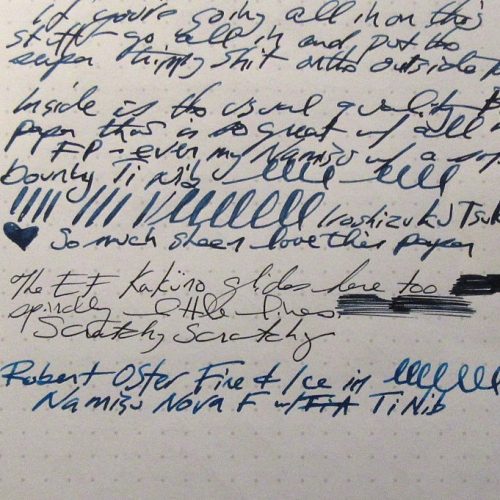 If you're going all in on this
stuff go all in and put the
super trippy shit on the outside
Inside is the usual quality
paper that is so great w/ all
FP - even my Namisu w/ a super
bouncy Ti nib
Iroshizuku Tsuk
So much sheen love this paper
The EF Kaküno glides here too
spindly little lines.
Scratchy Scratchy
Robert Oster Fire & Ice in
Namisu Nova F w/ Ti Nib